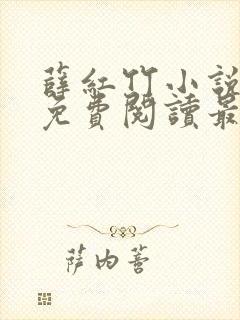 薛紅竹小說
免費閱讀最
薩内菩